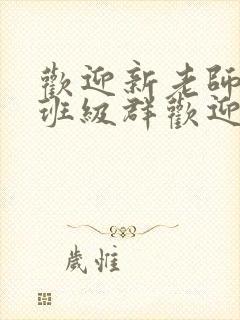 歡迎新老師
班級群歡迎
歲惟